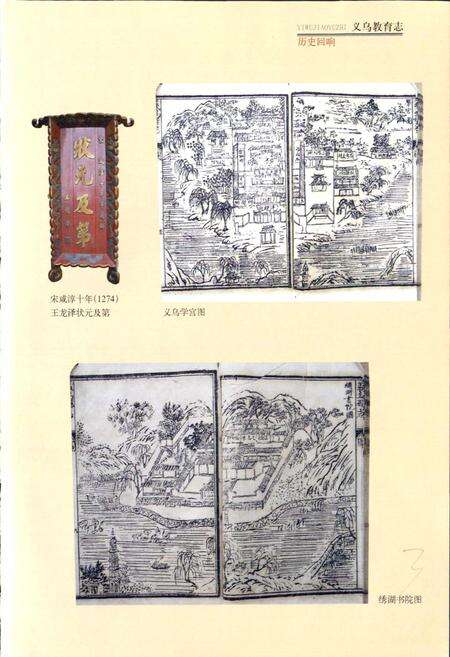 YIWUJIAOYUZHI 义乌教育志
历史回响
状元及第
宋咸淳十年(1274)
王龙泽状元及第
义乌学宫图
绣湖书院图
绣湖书院图
3